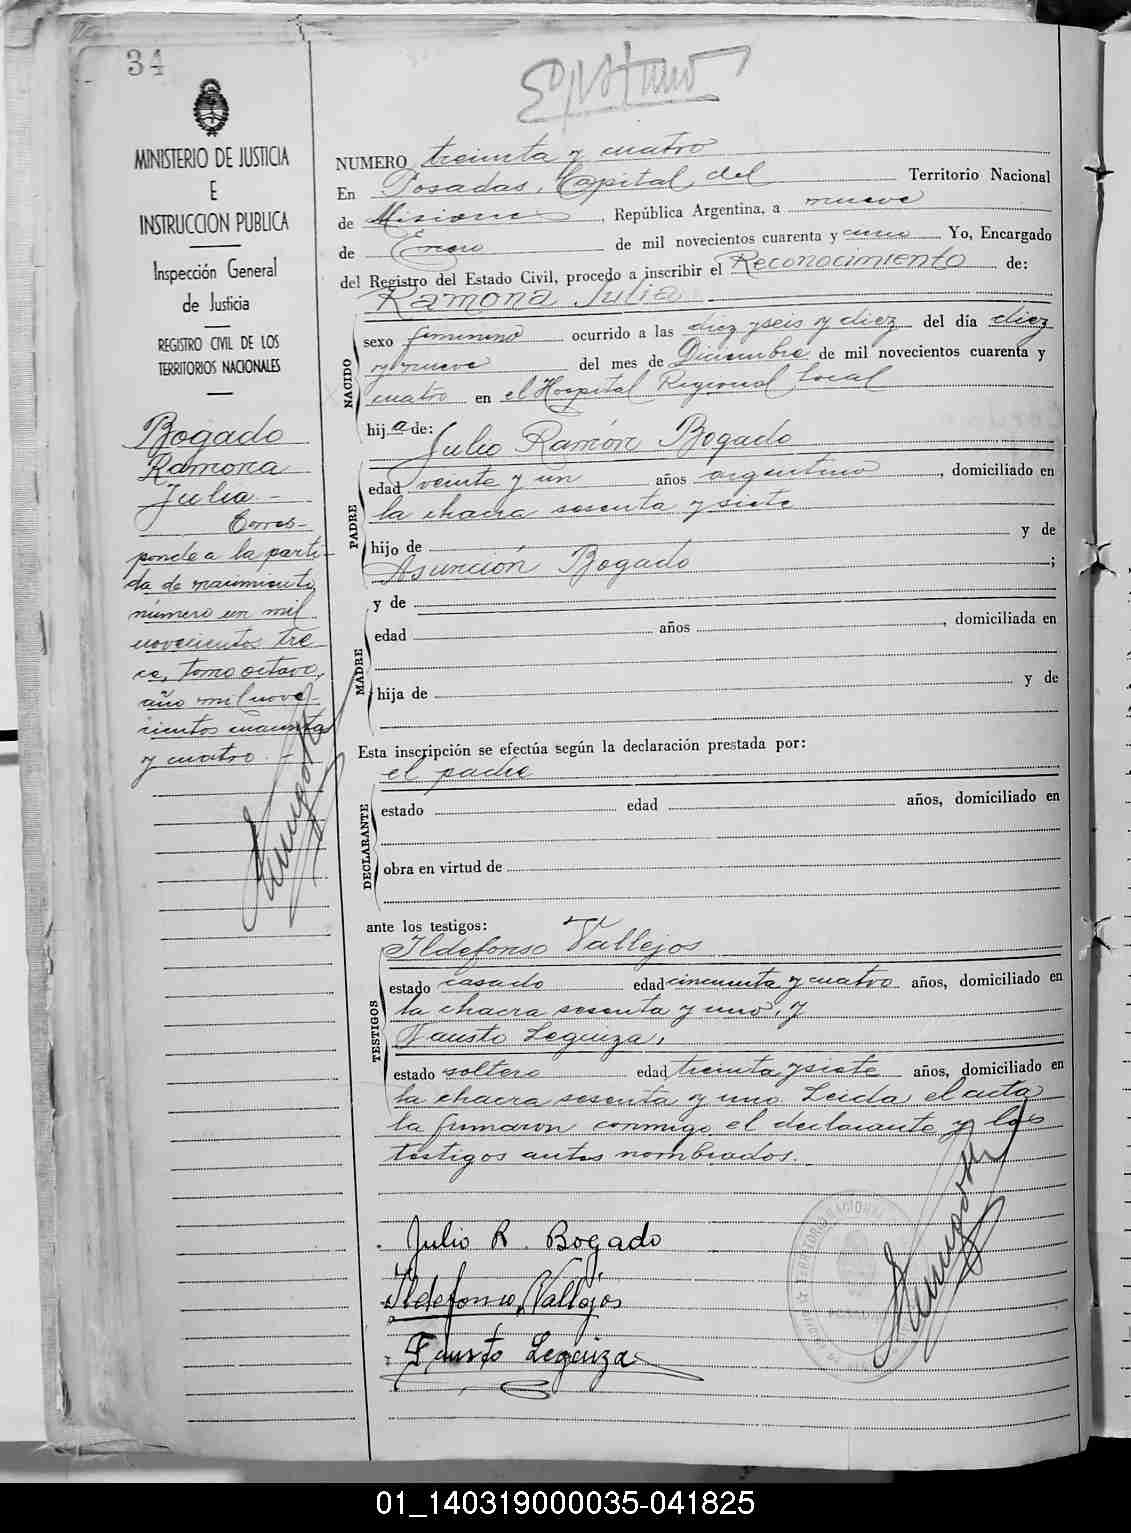 34
MINISTERIO DE JUSTICIA
E
INSTRUCCION PUBLICA
Inspección General
de Justicia
REGISTRO CIVIL DE LOS
TERRITORIOS NACIONALES
Bogado
Ramona
Julia.-
Corres-
ponde a la parti-
da de nacimiento
número un mil
novecientos tre
ce, tomo octavo,
año mil nove
cientos cuarenta
y cuatro.-
NUMERO treinta y cuatro
En Posadas, Capital del Territorio Nacional
de Misiones, República Argentina, a nueve
de Enero de mil novecientos cuarenta y cinco Yo, Encargado
del Registro del Estado Civil, procedo a inscribir el Reconocimiento de:
Ramona Julia
NACIDO
sexo femenino ocurrido a las diez y seis y diez del día diez
y nueve del mes de Diciembre de mil novecientos cuarenta y
cuatro en el Hospital Regional local
hija de:
Julio Ramón Bogado
PADRE
edad veinte y un años argentino, domiciliado en
la chacra sesenta y siete
hijo de y de
Asunción Bogado ;
y de
MADRE
edad años , domiciliada en
hija de y de
Esta inscripción se efectúa según la declaración prestada por:
el padre
DECLARANTE
estado edad años, domiciliado en
obra en virtud de
ante los testigos:
Ildefonso Vallejos
TESTIGOS
estado casado edad cincuenta y cuatro años, domiciliado en
la chacra sesenta y uno, y
Fausto Leguiza,
estado soltero edad treinta y siete años, domiciliado en
la chacra sesenta y uno Leida el acta
la firmaron conmigo el declarante y los
testigos antes nombrados.
Julio R. Bogado
Ildefonso Vallejos
Fausto Leguiza
01_140319000035-041825